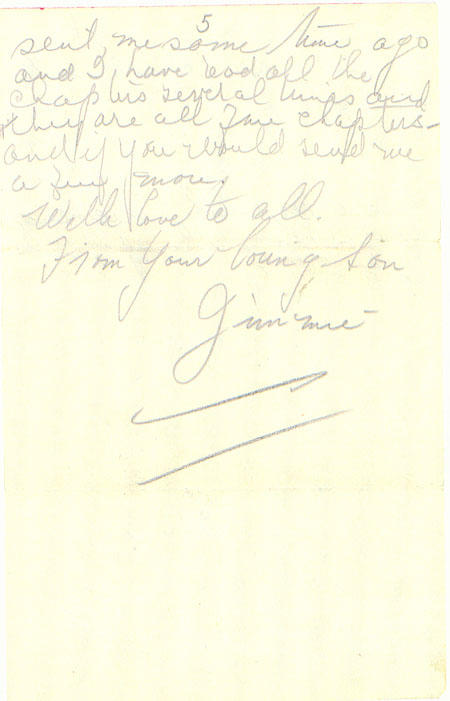 5
sent me some time ago
and I have read all the
chapters several times and
they are all fine chapters—
and if you would send me
a few more.
With love to all.
From your loving son
Jimmie